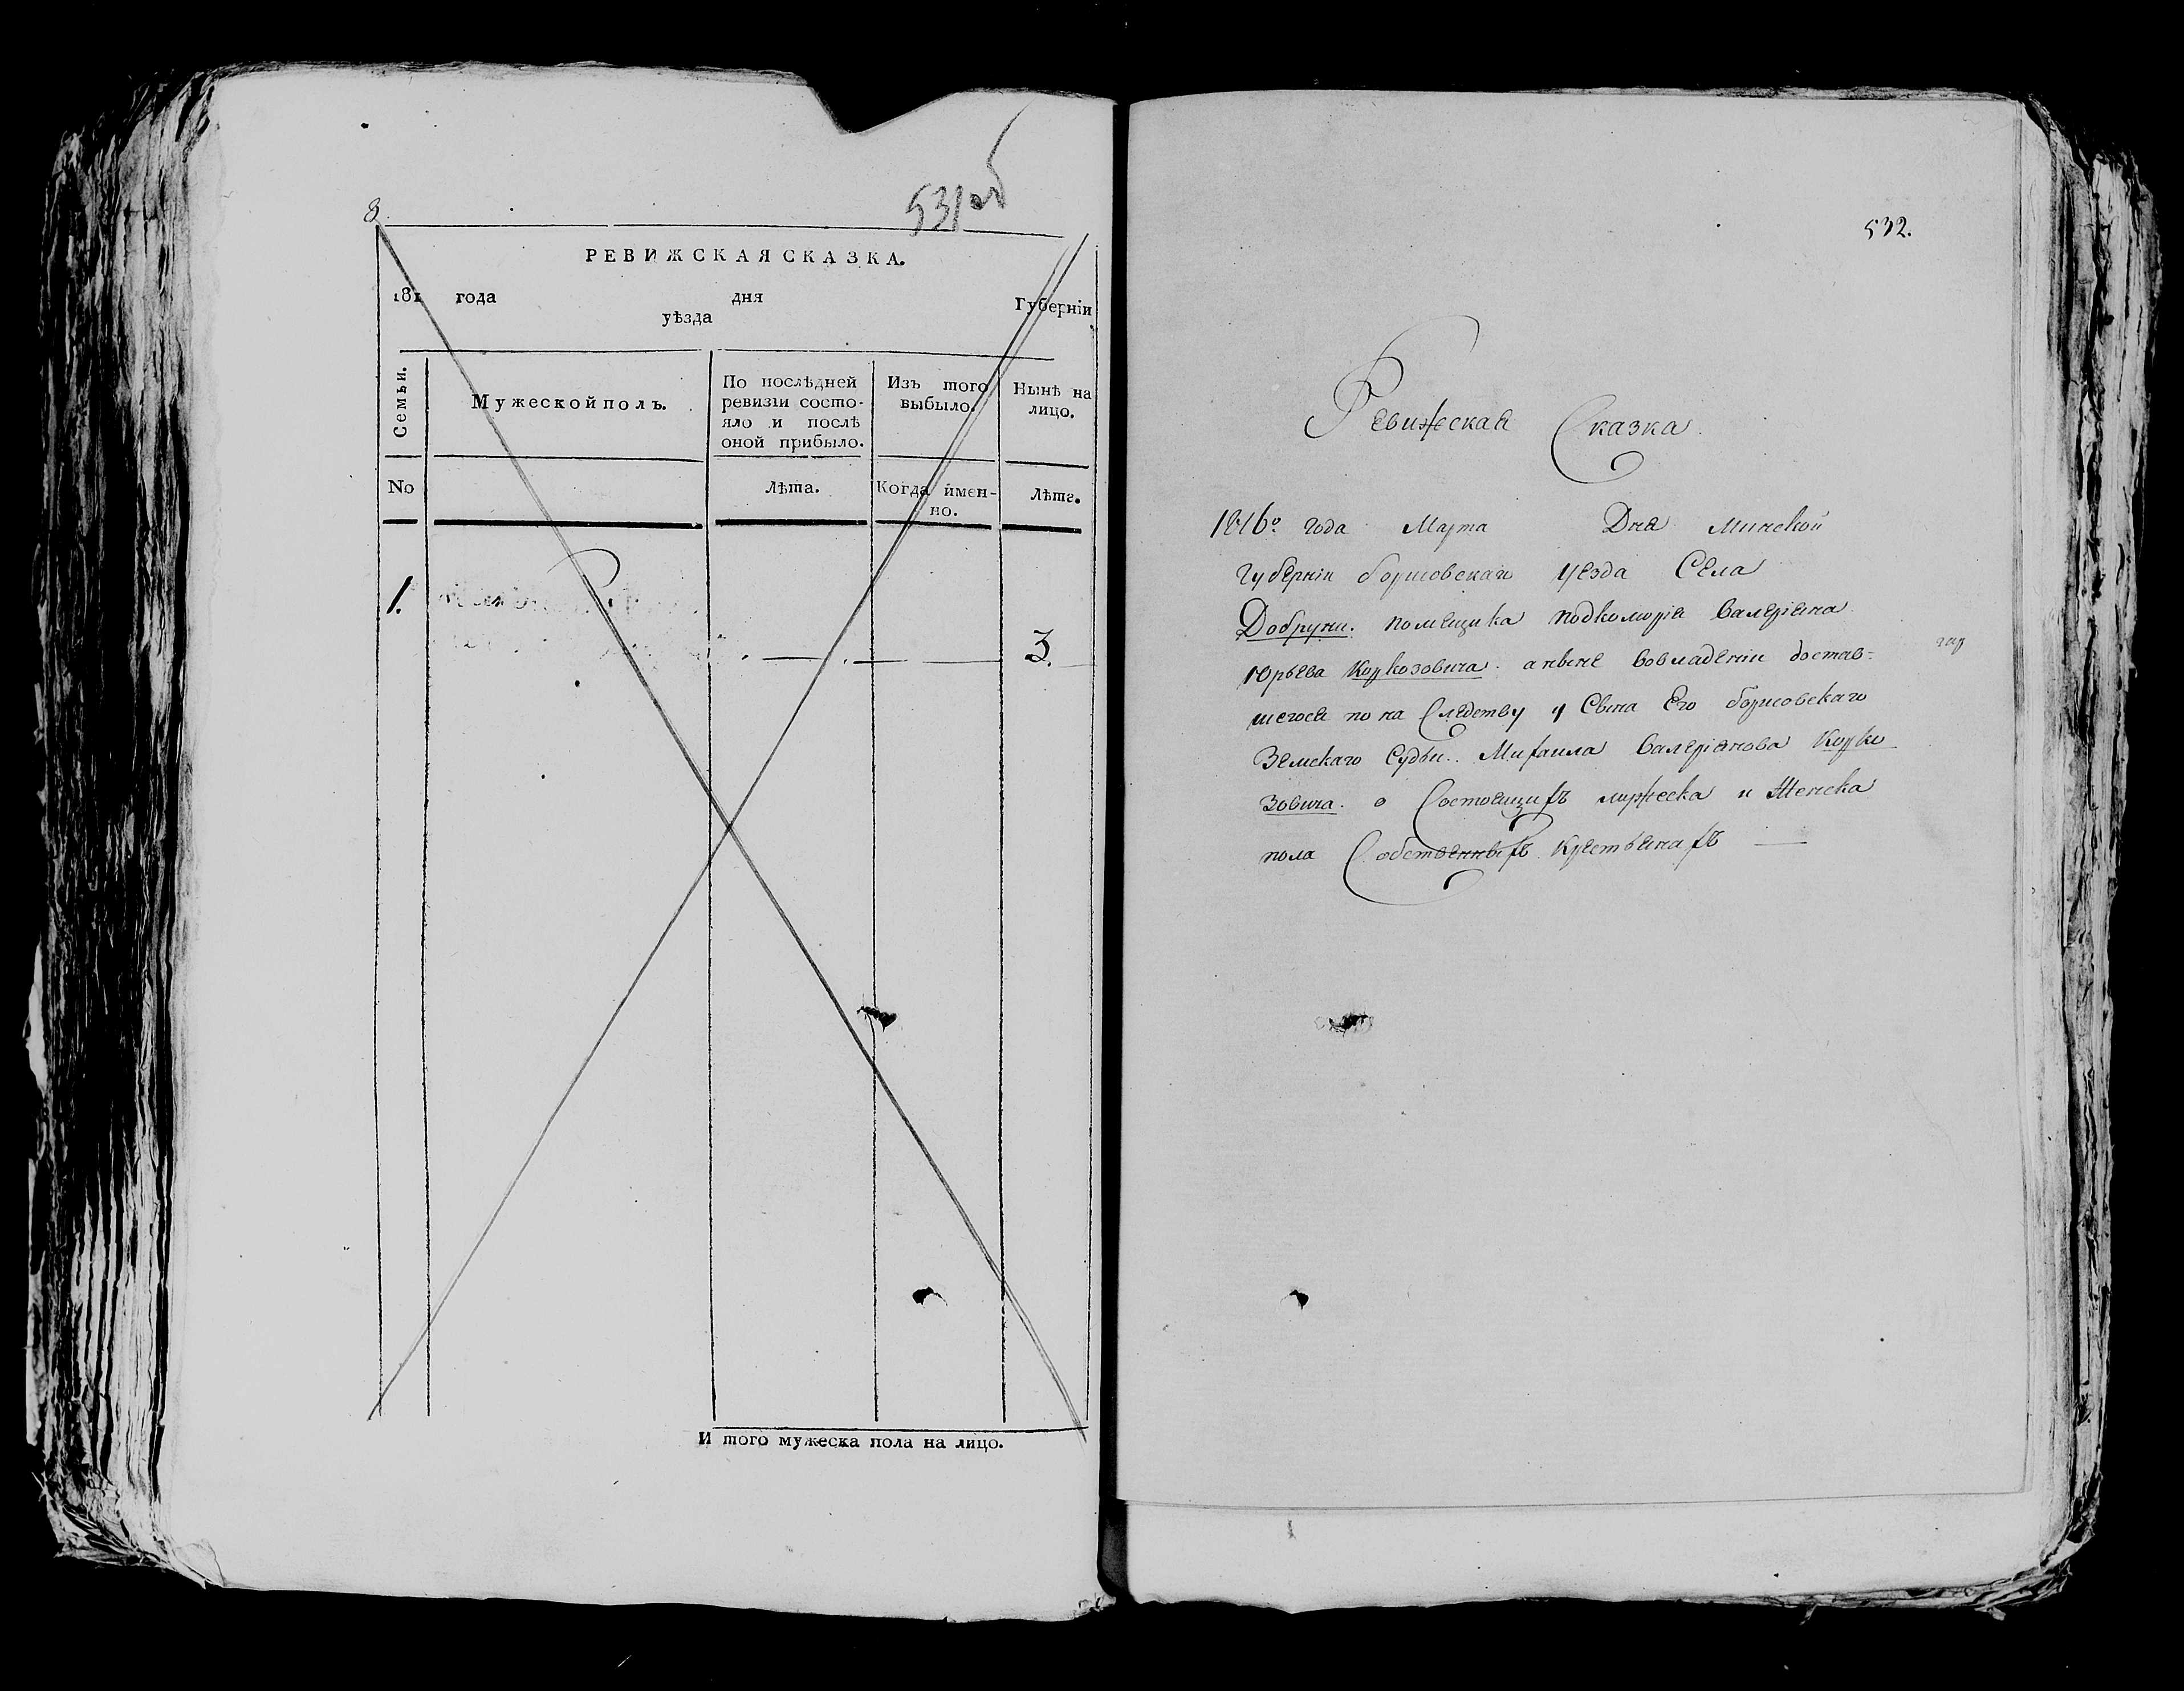 8.
531 об
РЕВИЖСКАЯ СКАЗКА.
181 года дня Губерніи
уѣзда
Семьи.
Мужеской полъ.
По послѣдней
ревизіи состо-
яло и послѣ
оной прибыло.
Изъ того
выбыло.
Нынѣ на
лицо.
No
Лѣта.
Когда имен-
но.
Лѣта.
1.
3.
И того мужеска пола на лицо.
532.
Ревижская Сказка.
1816го года Марта Дня Минской
Губерніи борисовскаго уезда Села
Добруни. помещика подкоморія Валеріяна
юрьева Коркозовича. а нынѣ вовладеніи достав=
шегося по на Следству у Сына Его борисовскаго
Земскаго Судьи.. Михаила Валеріянова Корко
зовича. о Состоящихъ мужеска и Женска
пола Собственныхъ крестьянахъ —